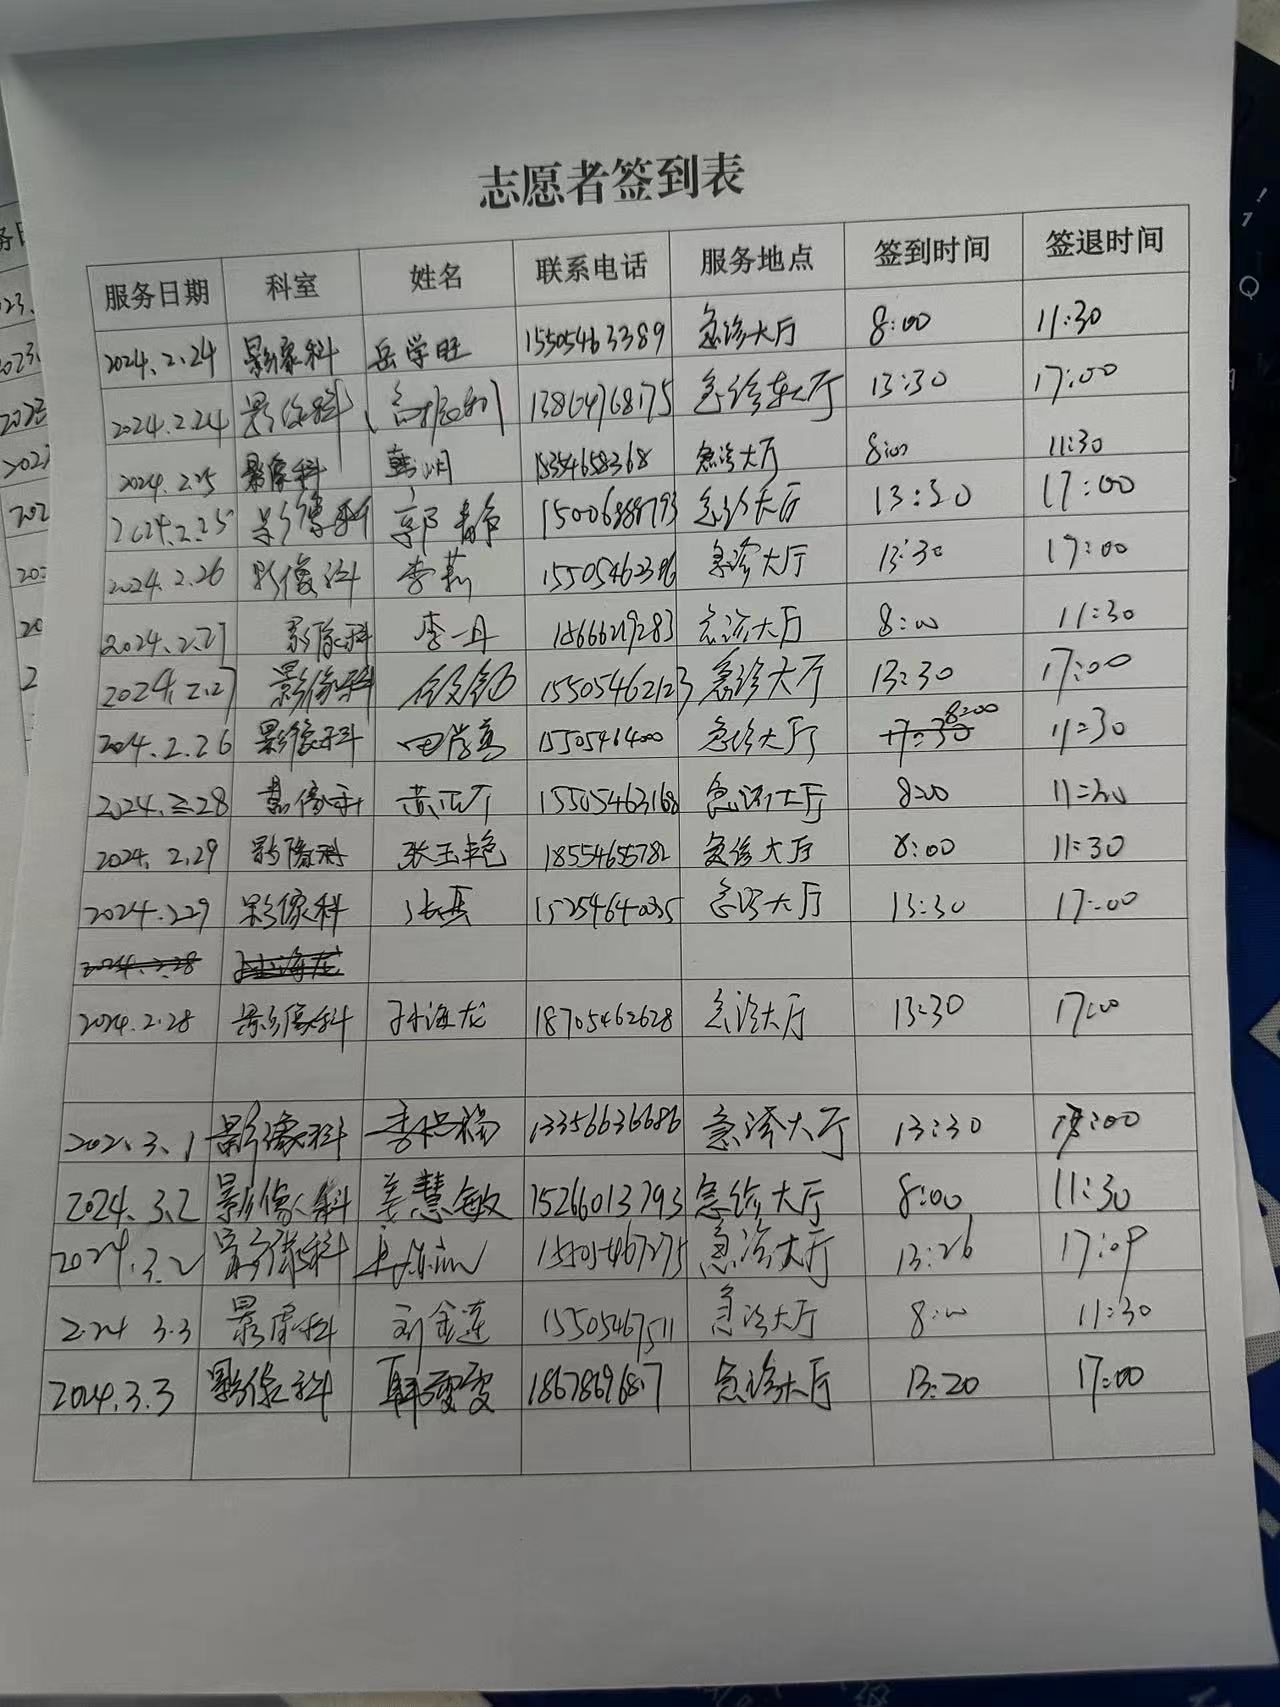 志愿者签到表
服务日期 科室 姓名 联系电话 服务地点 签到时间 签退时间
2024.2.24 影像科 岳学旺 15505463389 急诊大厅 8:00 11:30
2024.2.24 影像科 13864768175 急诊大厅 13:30 17:00
2024.2.25 影像科 韩娟 18354658368 急诊大厅 8:00 11:30
2024.2.25 影像科 郭静 15006888793 急诊大厅 13:30 17:00
2024.2.26 影像科 李莉 急诊大厅 13:30 17:00
2024.2.27 影像科 李一丹 急诊大厅 8:00 11:30
2024.2.27 影像科 15505462123 急诊大厅 13:30 17:00
2024.2.26 影像科 田学真 15505464000 急诊大厅 8:00 11:30
2024.2.28 影像科 15505463168 急诊大厅 8:00 11:30
2024.2.29 影像科 张玉艳 18554655782 急诊大厅 8:00 11:30
2024.2.29 影像科 15254640035 急诊大厅 13:30 17:00
2024.2.28 孙海龙
2024.2.28 影像科 孙海龙 18705462628 急诊大厅 13:30 17:00
202.3.1 影像科 13356636686 急诊大厅 13:30 17:00
2024.3.2 影像科 姜慧敏 15266013793 急诊大厅 8:00 11:30
2024.3.2 影像科 15505467275 急诊大厅 13:26 17:09
影像科 刘金莲 15505467511 急诊大厅 8:00 11:30
2024.3.3 影像科 急诊大厅 13:20 17:00